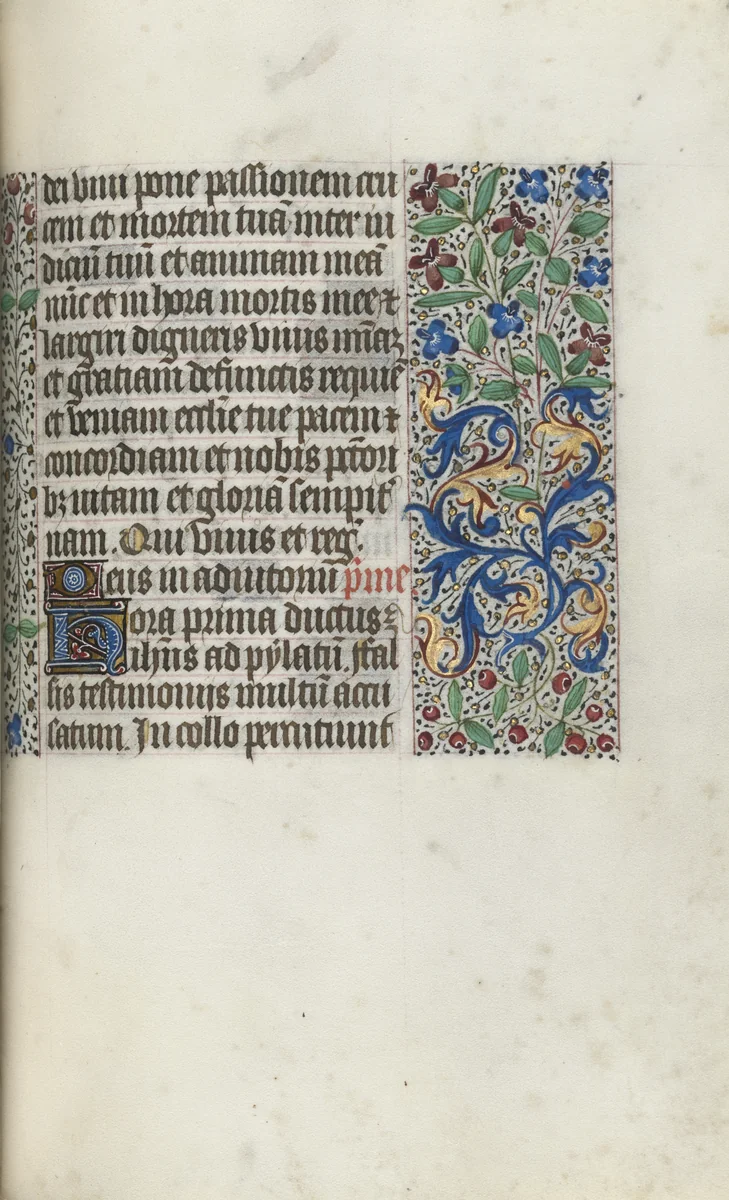 dei viui pone passionem cru
cem et mortem tuā inter iu
diciū tuū et animam meā
nūc et in hora mortis mee ⁊
largiri digneris viuis mīaꝫ
et gratiam defunctis requiē
et veniam ecclīe tue pacem ⁊
concordiam et nobis pctori
bꝫ uitam et gloriā sempit᷑
nam. Qui viuis et reg.
Deus in adiutoriū pͥme.
Hora prima ductus ē
ihūs ad pylatū. fal
sis testimoniis multū accu
satum. In collo percutiunt